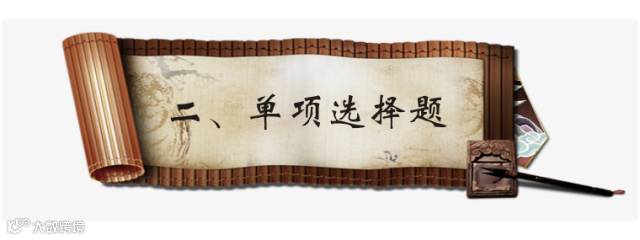 二、单项选择题
大数跨境